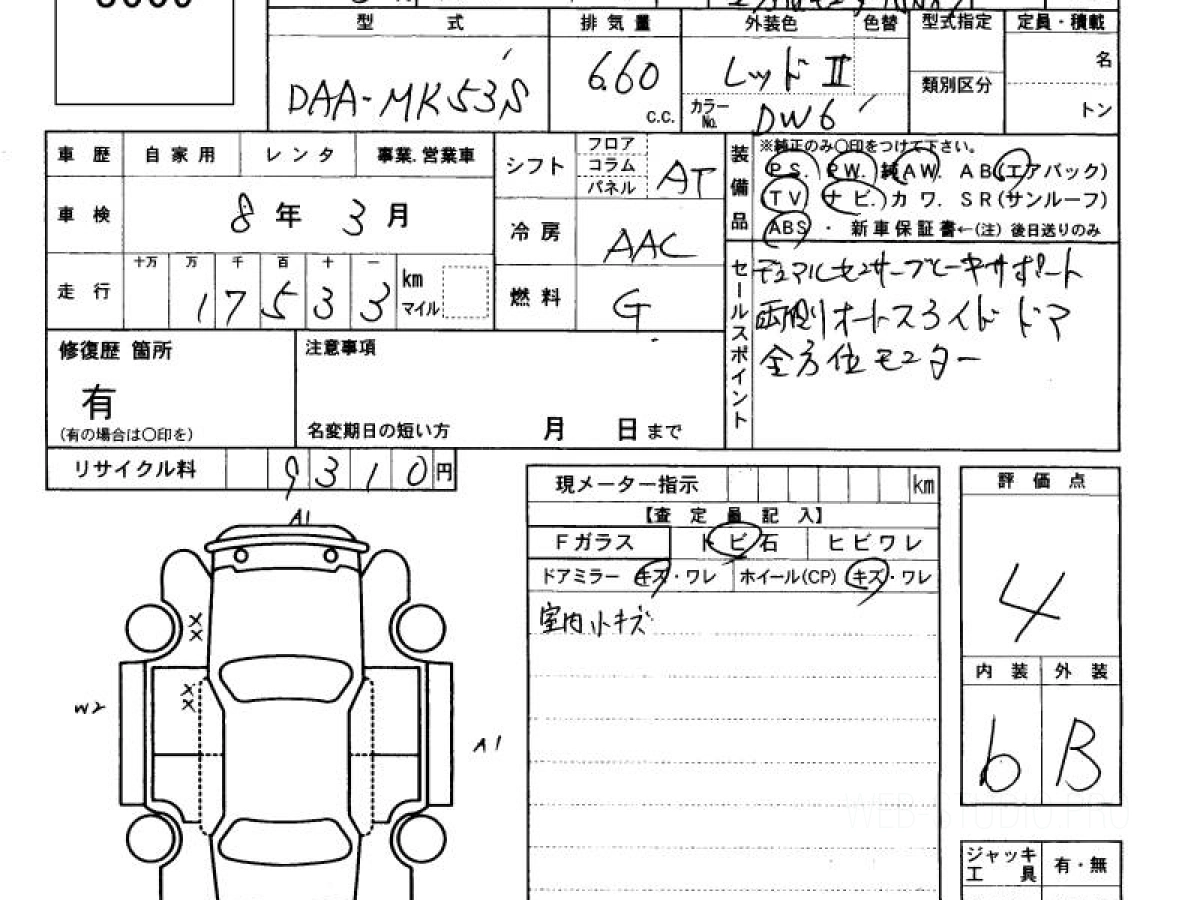 型 式 排気量 外装色 色替 型式指定 定員・積載
DAA-MK53S 660 c.c. レッドⅡ 名
カラーNo. DW6 類別区分 トン
車歴 自家用 レンタ 事業.営業車
シフト フロア コラム パネル AT
装備品 ※純正のみ〇印をつけて下さい。
PS. PW. 純AW. AB(エアバック)
TV ナビ. カワ. SR(サンルーフ)
ABS ・ 新車保証書←(注) 後日送りのみ
車検 8年 3月
冷房 AAC
走行 十万 万 千 百 十 一
17533 km マイル
燃料 G
セールスポイント
デュアルセンサーブレーキサポート
両側オートスライドドア
全方位モニター
修復歴 箇所
有
(有の場合は〇印を)
注意事項
名変期日の短い方 月 日まで
リサイクル料 9310円
現メーター指示 km
【査定員記入】
Fガラス トビ石 ヒビワレ
ドアミラー キズ・ワレ ホイール(CP) キズ・ワレ
室内小キズ
評価点
4
内装 外装
b B
ジャッキ
工具 有・無
A1
XX
XX
W2
A1
WEB-STUDIO.PRO